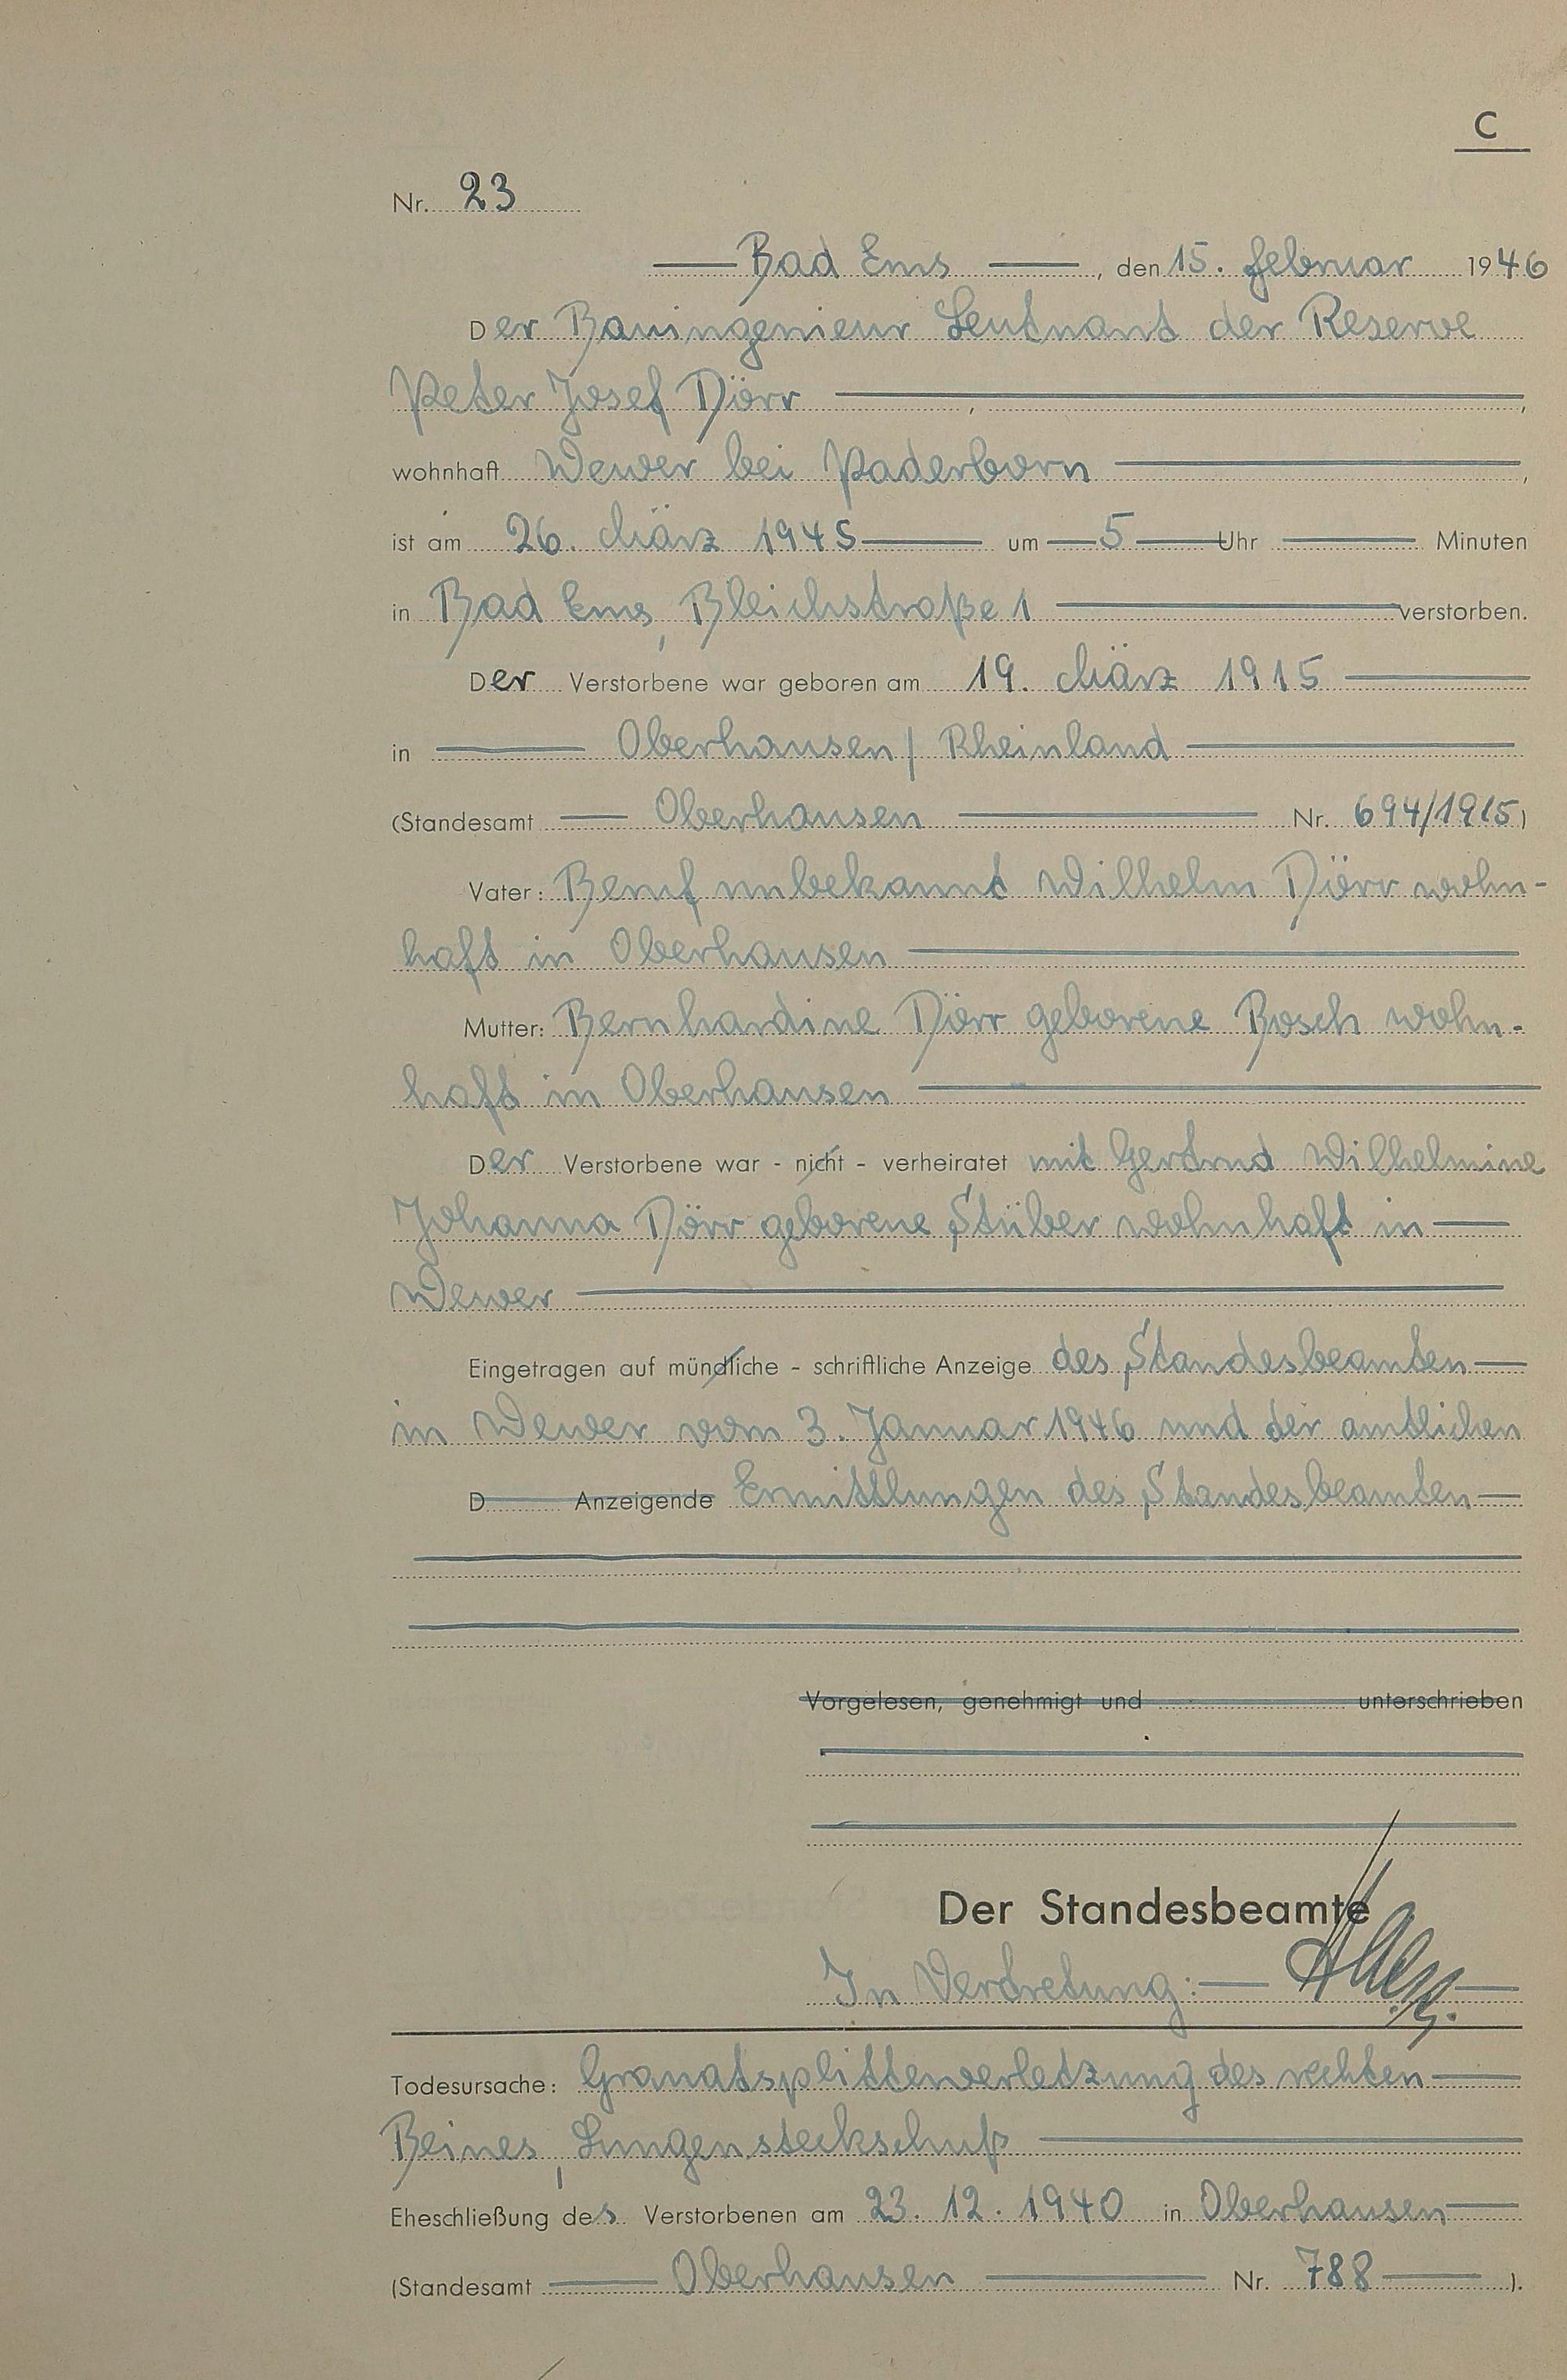 C
Nr. 23
Bad Ems, den 15. Februar 1946
Der Bauingenieur Leutnant der Reserve
Peter Josef Dörr,
wohnhaft Wewer bei Paderborn,
ist am 26. März 1945 um 5 Uhr Minuten
in Bad Ems, Bleichstraße 1 verstorben.
Der Verstorbene war geboren am 19. März 1915
in Oberhausen/Rheinland
(Standesamt Oberhausen Nr. 694/1915)
Vater: Beruf unbekannt Wilhelm Dörr wohn-
haft in Oberhausen
Mutter: Bernhardine Dörr geborene Bosch wohn-
haft in Oberhausen
Der Verstorbene war - nicht - verheiratet mit Gertrud Wilhelmine
Johanna Dörr geborene Stüber wohnhaft in
Wewer
Eingetragen auf mündliche - schriftliche Anzeige des Standesbeamten
in Wewer vom 3. Januar 1946 und der amtlichen
D Anzeigende Ermittlungen des Standesbeamten
Vorgelesen, genehmigt und unterschrieben
Der Standesbeamte
In Vertretung:
Todesursache: Granatsplitterverletzung des rechten
Beines, Lungensteckschuß
Eheschließung des Verstorbenen am 23. 12. 1940 in Oberhausen
(Standesamt Oberhausen Nr. 788).